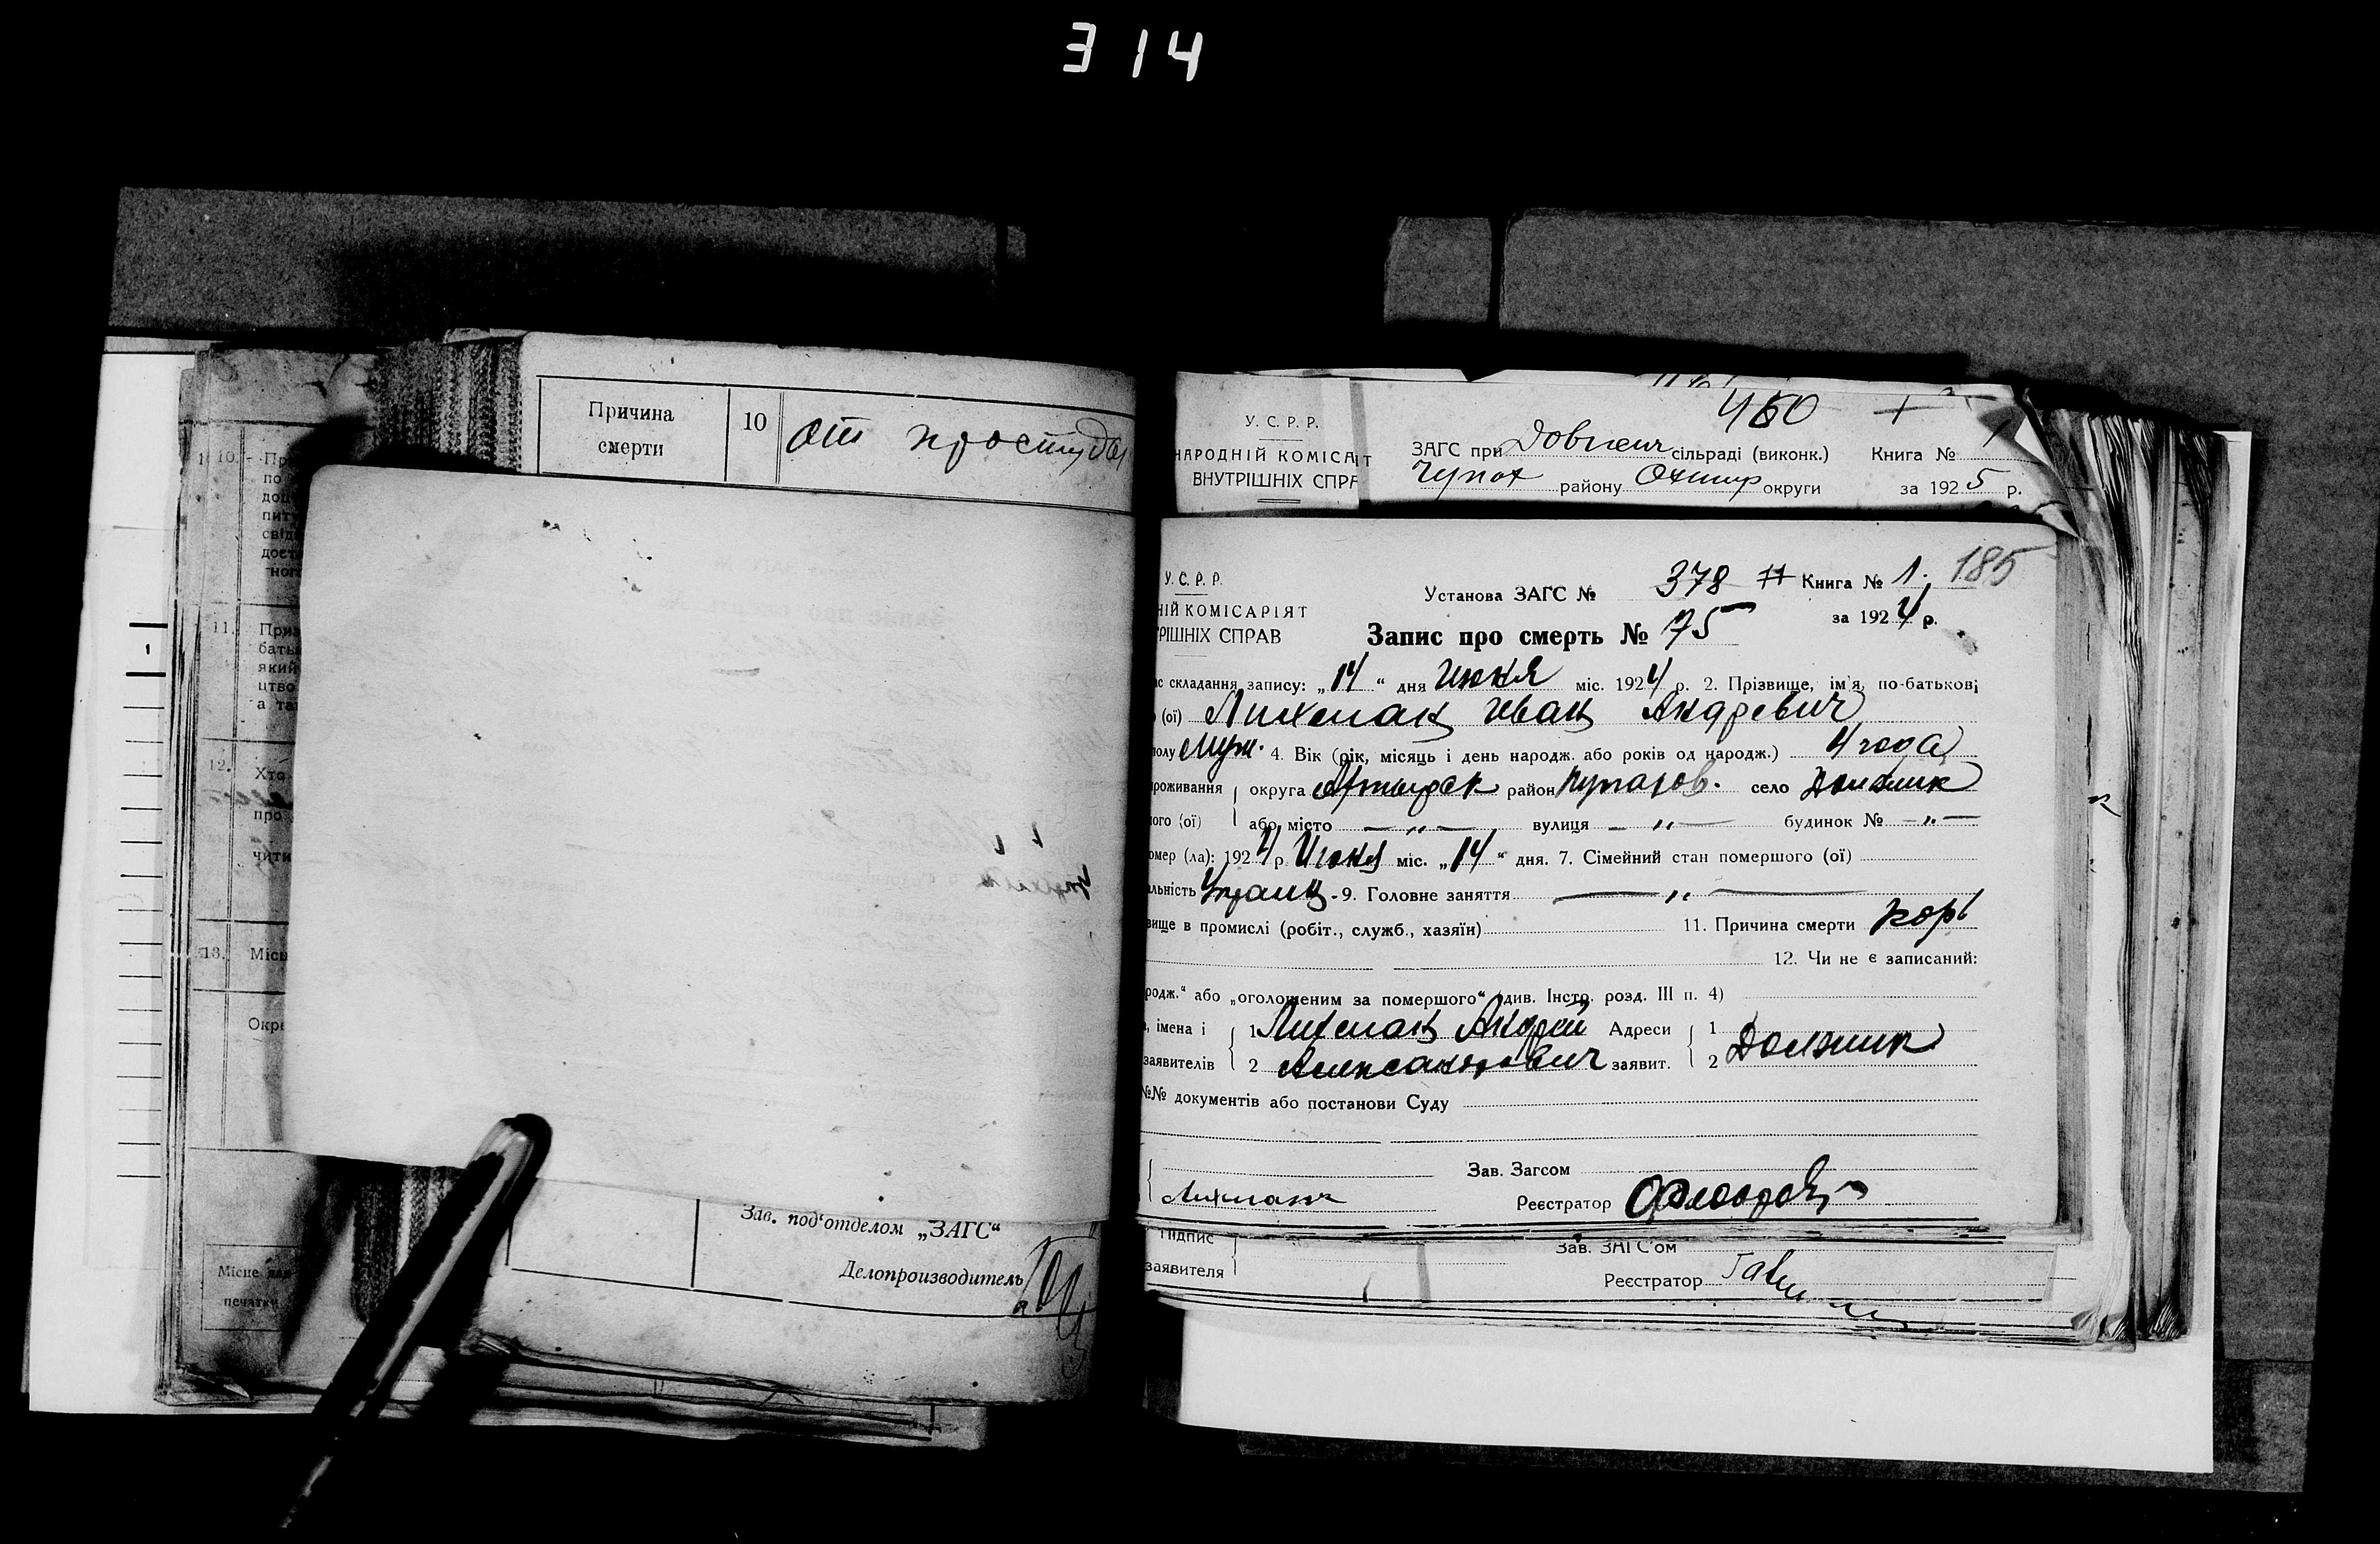 314
Причина
смерти
10
от простуды
10. Пр
по
пит
свід
11. Приз
бать
який
цтво
а та
12. Хто
про
чити
13. Місц
Окре
Місце для
печатки
Зав. под'отделом „ЗАГС“
Делопроизводитель
460
У. С. Р. Р.
НАРОДНІЙ КОМІСАРІТ
ВНУТРІШНІХ СПРА
ЗАГС при Довжен сільраді (виконк.) Книга № 1
Чупах району Охтир округи за 1925 р.
У. С. Р. Р.
НІЙ КОМІСАРІЯТ
РІШНІХ СПРАВ
Установа ЗАГС № 378 Книга № 1. 185
за 1924 р.
Запис про смерть № 75
ас складання запису: „14“ дня Июня міс. 1924 р. 2. Прізвище, ім'я, по-батькові
(ої) Лихман Иван Андревич
полу Муж. 4. Вік (рік, місяць і день народж. або років од народж.) 4 года
проживання округа Ахтырск район Чупахов. село Должик
ого (ої) або місто — „ — вулиця — „ — будинок № — „ —
омер (ла): 1924 р. Июня міс. „14“ дня. 7. Сімейний стан помершого (ої)
альність Украин. 9. Головне заняття — „ —
вище в промислі (робіт., служб., хазяїн) 11. Причина смерти корь
12. Чи не є записаний:
родж.“ або „оголошеним за помершого“ (див. Інстр. розд. III п. 4)
, імена і 1 Лихман Андрей Адреси 1
заявителів 2 Александрович заявит. 2 Должик
№№ документів або постанови Суду
Зав. Загсом
Лихман
Реєстратор
Підпис
заявителя
Зав. ЗАГС'ом
Реєстратор